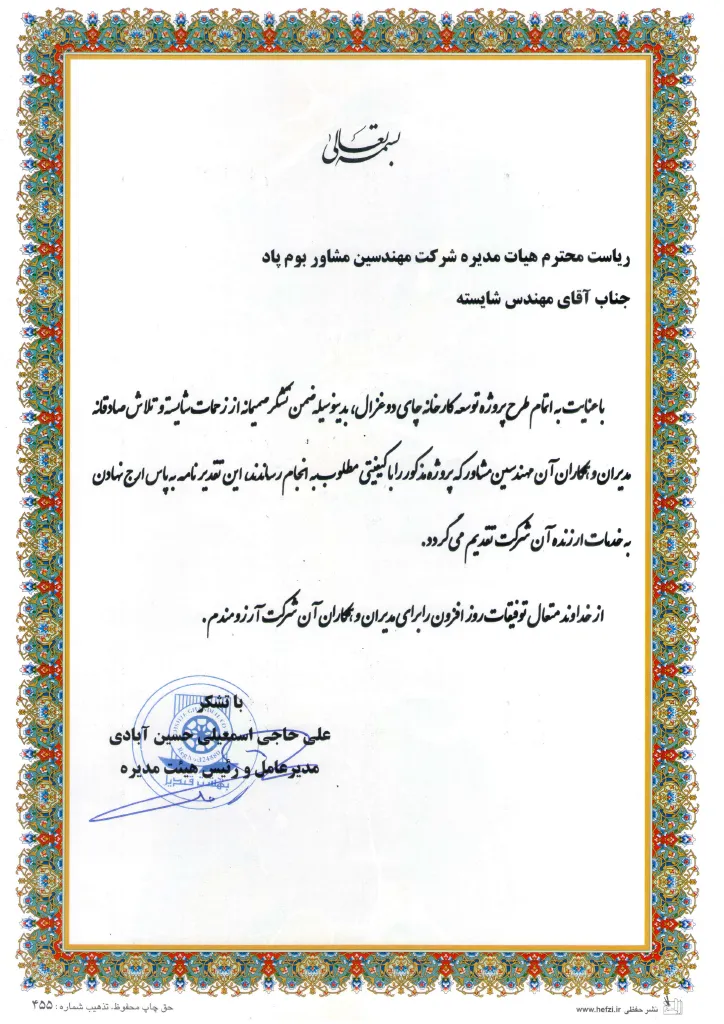 بسمه تعالی
ریاست محترم هیات مدیره شرکت مهندسین مشاور بوم پاد
جناب آقای مهندس شایسته
با عنایت به اتمام طرح پروژه توسعه کارخانه چای دو غزال، بدینوسیله ضمن تشکر صمیمانه از زحمات شایسته و تلاش صادقانه
مدیران و همکاران آن مهندسین مشاور که پروژه مذکور را با کیفیتی مطلوب به انجام رساندند، این تقدیر نامه به پاس ارج نهادن
به خدمات ارزنده آن شرکت تقدیم می گردد.
از خداوند متعال توفیقات روز افزون را برای مدیران و همکاران آن شرکت آرزومندم.
با تشکر
علی حاجی اسمعیلی حسین آبادی
مدیرعامل و رئیس هیئت مدیره
حق چاپ محفوظ. تذهیب شماره: ۴۵۵
نشر حفظی www.hefzi.ir